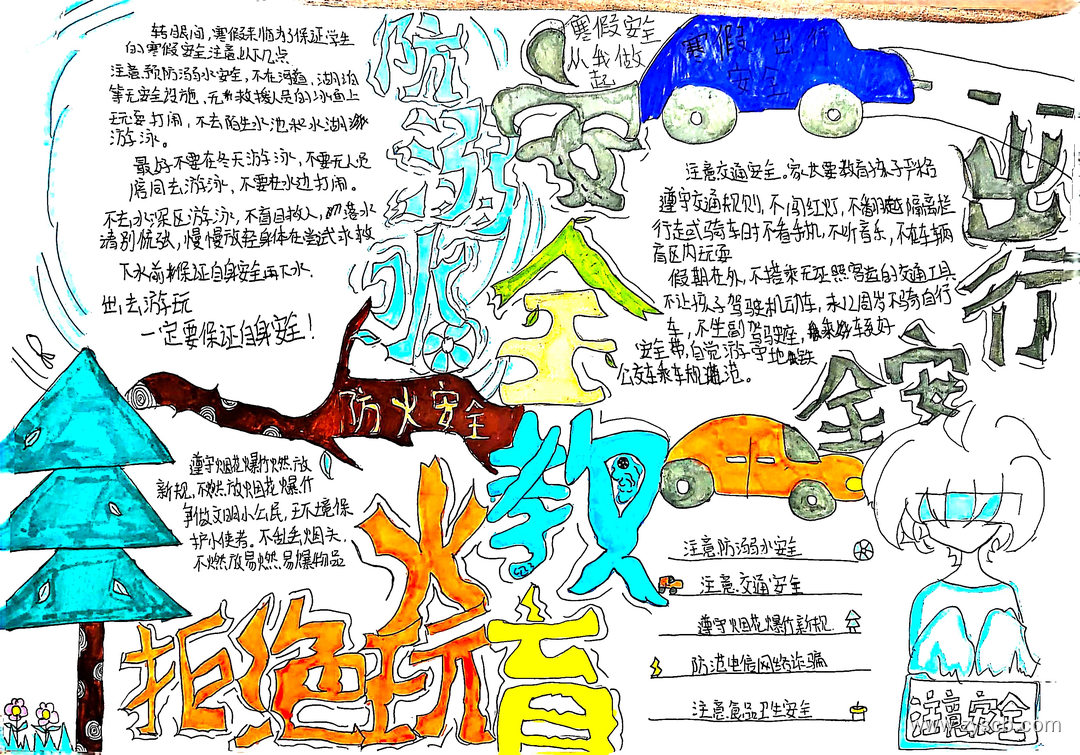 转眼间,寒假来临为了保证学生
的寒假安全注意以下几点
注意预防溺水安全,不在河道,湖泊
等无安全设施,无救援人员的冰面上
玩耍打闹,不去陌生水池和水湖游
游泳。
最好不要在冬天游泳,不要无人员
陪同去游泳,不要在水边打闹。
不去水深区游泳,不盲目救人,溺水
请别慌张,慢慢放轻身体在尝试求救
下水前请保证自身安全再下水.
出去游玩
一定要保证自身安全!
防溺水
安全教育
寒假安全
从我做
起
寒假出行
安全
出行
安全
注意交通安全。家长要教育孩子严格
遵守交通规则,不闯红灯,不翻越隔离栏
行走或骑车时不看手机,不听音乐,不在车辆
盲区内玩耍
假期在外,不搭乘无证照营运的交通工具
不让孩子驾驶机动车,未12周岁不骑自行
车,不坐副驾驶座,乘车系好
安全带,自觉遵守地铁
公交车乘车规范。
防火安全
遵守烟花爆竹燃放
新规,不燃放烟花爆竹
争做文明小公民,环境保
护小使者,不乱丢烟头.
不燃放易燃易爆物品
拒绝玩火
注意防溺水安全
注意交通安全
遵守烟花爆竹新规.
防范电信网络诈骗
注意食品卫生安全
注意安全